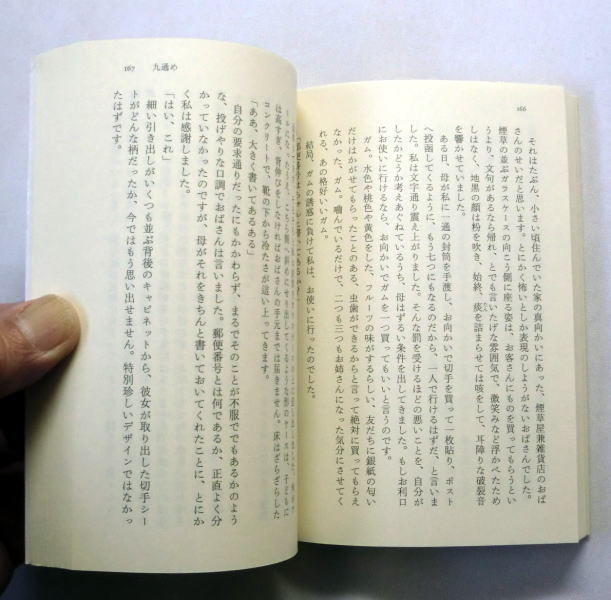 166
それはたぶん、小さい頃住んでいた家の真向かいにあった、煙草屋兼雑貨店のおば
さんのせいだと思います。とにかく怖いとしか表現のしようがないおばさんでした。
煙草の並ぶガラスケースの向こう側に座る姿は、お客さんにものを買ってもらうとい
うより、文句があるなら帰れ、とでも言いたげな雰囲気で、微笑みなど浮かべたため
しはなく、地黒の顔は粉を吹き、始終、痰を詰まらせては咳をして、耳障りな破裂音
を響かせていました。
ある日、母が私に一通の封筒を手渡し、お向かいで切手を買って一枚貼り、ポスト
へ投函してくるように、もう七つにもなるのだから、一人で行けるはずだ、と言いま
した。私は文字通り震え上がりました。そんな罰を受けるほどの悪いことを、自分が
したかどうか考えあぐねているうち、母はずるい条件を出してきました。もしお利口
にお使いに行けるなら、お向かいでガムを一つ買ってもいいと言うのです。
ガム。水色や桃色や黄色をした、フルーツの味がするらしい、友だちに銀紙の匂い
だけはかがせてもらったことのある、虫歯ができるからと言って絶対に買ってもらえ
なかった、ガム。噛んでいるだけで、二つも三つもお姉さんになった気分にさせてく
れる、あの格好いいガム。
結局、ガムの誘惑に負けて私は、お使いに行ったのでした。
167 九通め
は高すぎ、背伸びをしなければおばさんの手元までは届きません。床はざらざらした
コンクリートで、靴の下から冷たさが這い上ってきます。
「ああ、大きく書いてあるある」
自分の要求通りだったにもかかわらず、まるでそのことが不服ででもあるかのよう
な、投げやりな口調でおばさんは言いました。郵便番号とは何であるか、正直よく分
かっていなかったのですが、母がそれをきちんと書いておいてくれたことに、とにか
く私は感謝しました。
「はい、これ」
細い引き出しがいくつも並ぶ背後のキャビネットから、彼女が取り出した切手シー
トがどんな柄だったか、今ではもう思い出せません。特別珍しいデザインではなかっ
たはずです。